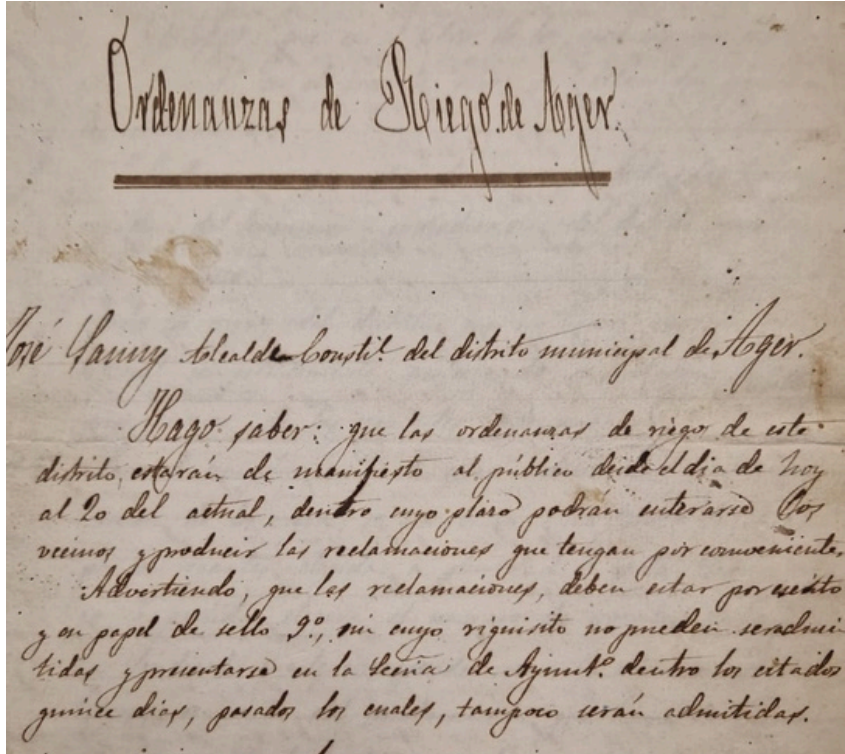 Ordenanzas de Riego de Ager.
José Lanny Alcalde Constil. del distrito municipal de Ager.
Hago saber: que las ordenanzas de riego de este
distrito, estarán de manifiesto al público desde el dia de hoy
al 20 del actual, dentro cuyo plazo podrán enterarse los
vecinos y producir las reclamaciones que tengan por conveniente.
Advertiendo, que las reclamaciones, deben estar por escrito
y en papel de sello 9º, sin cuyo riquisito no pueden ser admi
tidas y presentarse en la Sección de Ayuntº. dentro los citados
quince dias, pasados los cuales, tampoco serán admitidas.